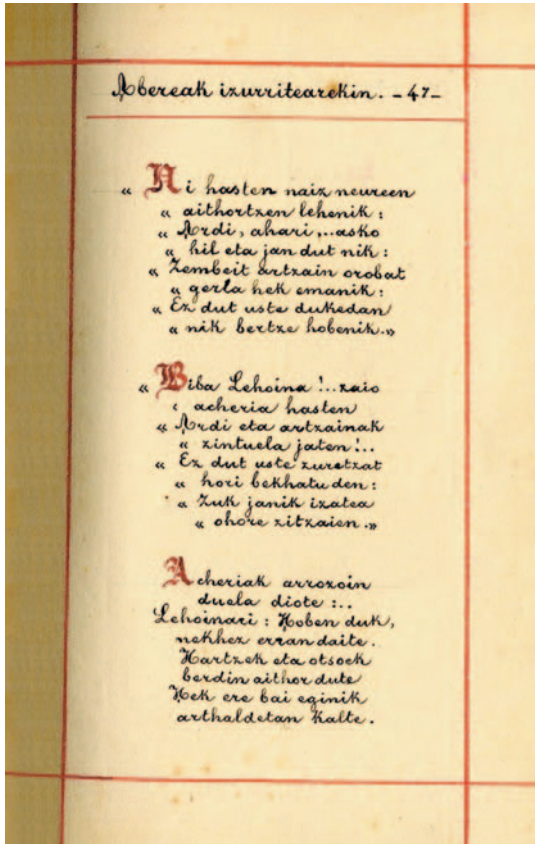 Abereak izurritearekin. - 47 -
« Ni hasten naiz neureen
« aithortzen lehenik :
« Ardi, ahari,.. asko
« hil eta jan dut nik :
« Zembeit artzain orobat
« gerla hek emanik :
« Ez dut uste dukedan
« nik bertze hobenik.»
« Biba Lehoina !.. zaio
‹ acheria hasten
« Ardi eta artzainak
« zintuela jaten !..
« Ez dut uste zuretzat
« hori bekhatu den :
« Zuk janik izatea
« ohore zitzaien.»
Acheriak arrozoin
duela diote :..
Lehoinari : Hoben duk,
nekhez erran daite.
Hartzek eta otsoek
berdin aithor dute
Hek ere bai eginik
arthaldetan kalte.